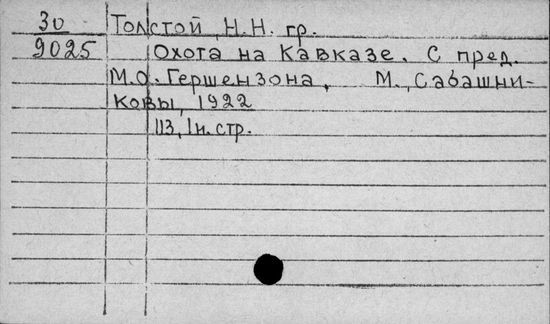 30
9025
Толстой, Н.Н. гр.
Охота на Кавказе. С пред.
М.О. Гершензона. М., Сабашни-
ковы, 1922
113, 1 н. стр.